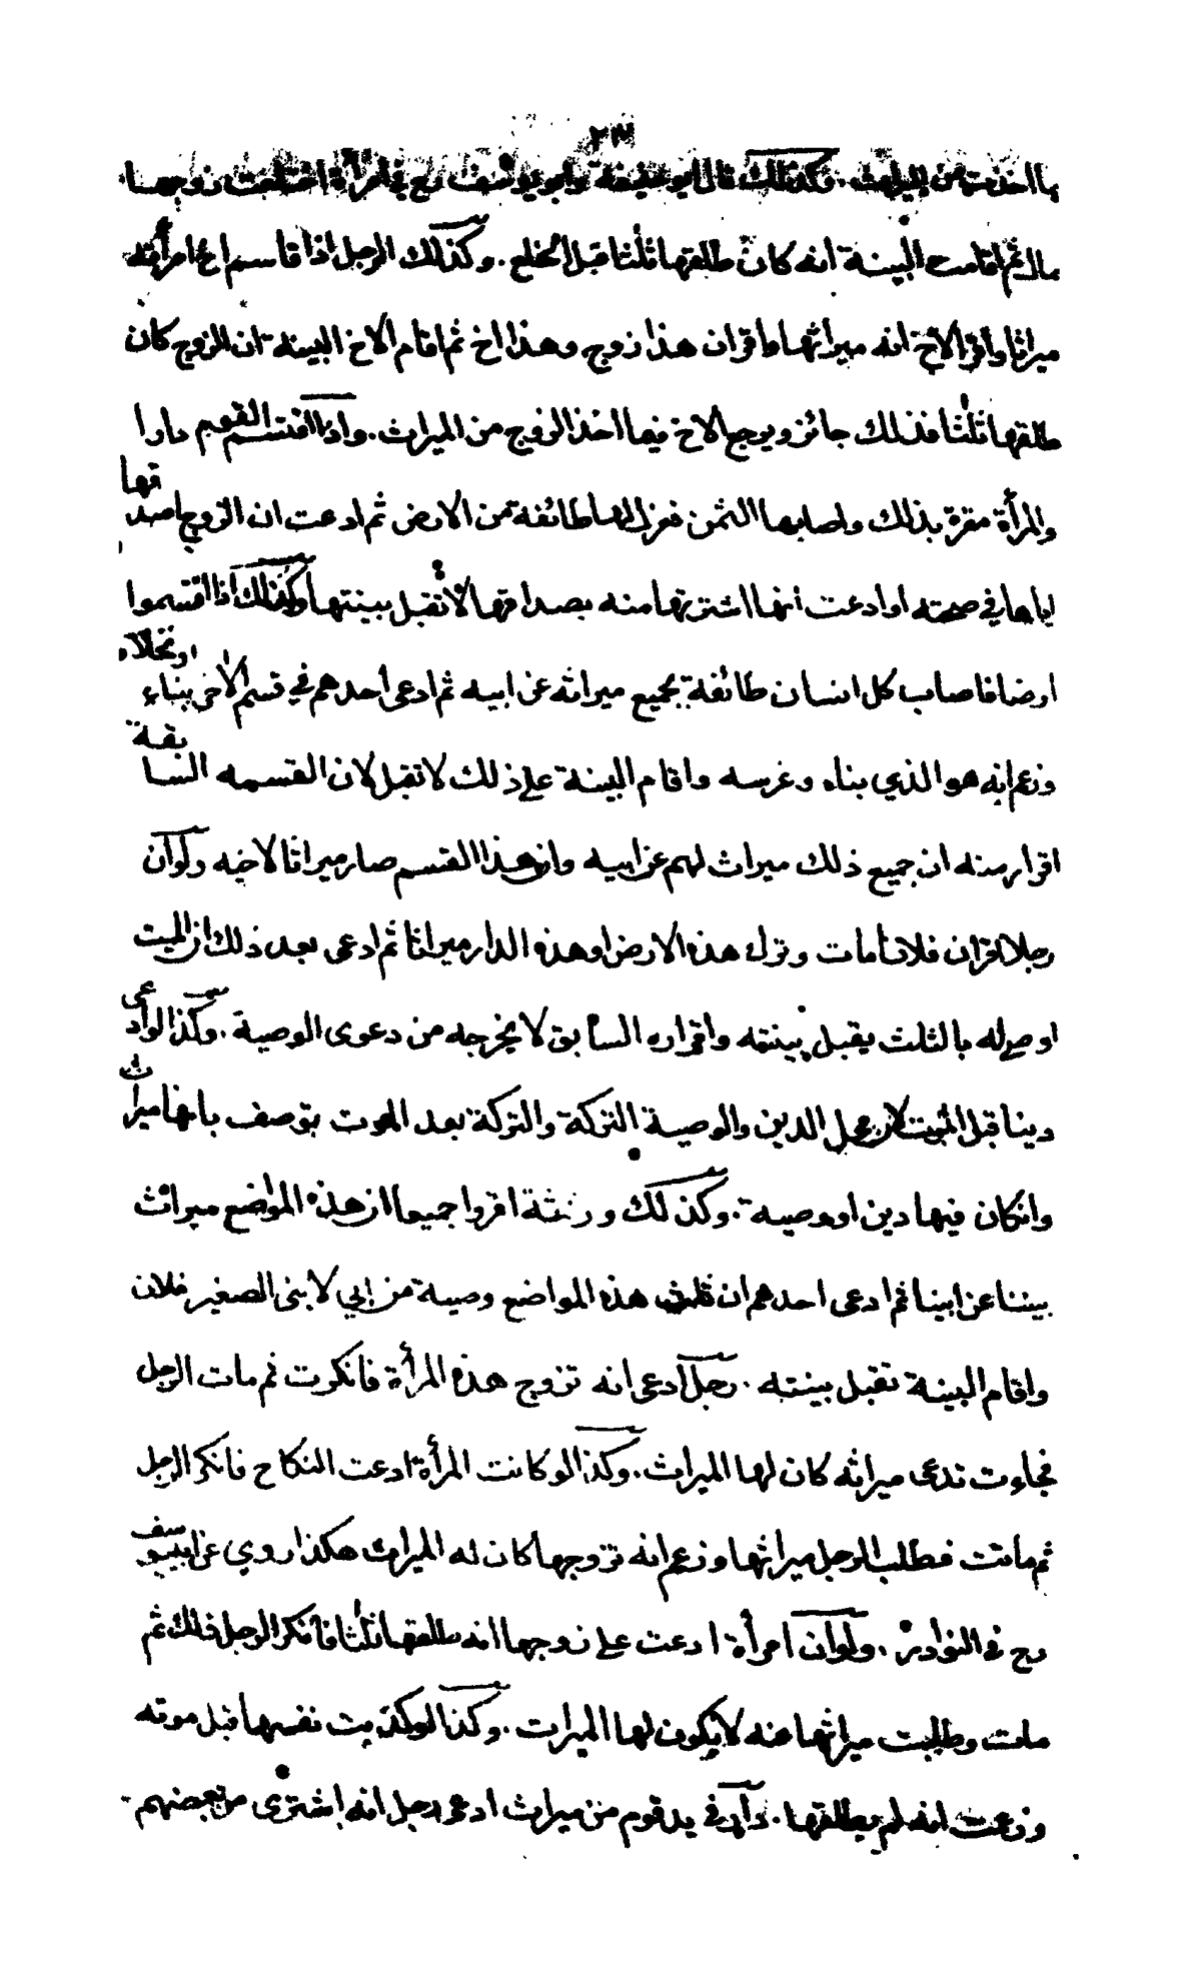 ٢٣
بما اخذت من الميراث . وكذلك قال ابو حنيفة وابو يوسف رح في امرأة اختلعت زوجها
بمال ثم اقامت البينة انه كان طلقها ثلثا قبل الخلع . وكذلك الرجل اذا قاسم اخ امرأته
ميراثا واقر الاخ انه ميراثها واقر ان هذا زوج وهذا اخ ثم اقام الاخ البينة ان الزوج كان
طلقها ثلثا فذلك جائز ويرجع الاخ فيما اخذ الزوج من الميراث . واذا اقتسم القوم دارا
والمرأة مقرة بذلك واصابها الثمن فعزل لها طائفة من الارض ثم ادعت ان الزوج اصدقها
اياها في صحته او ادعت انها اشترتها منه بصداقها لا تقبل بينتها وكذلك اذا اقتسموا
ارضا فاصاب كل انسان طائفة بجميع ميراثه عن ابيه ثم ادعى احدهم في قسم الآخر بناء او نخلا
وزعم انه هو الذي بناه وغرسه واقام البينة على ذلك لا تقبل لان القسمه السابقة
اقرار منه ان جميع ذلك ميراث لهم عن ابيه وان هذا القسم صار ميراثا لاخيه ولو ان
رجلا اقر ان فلانا مات وترك هذه الارض او هذه الدار ميراثا ثم ادعى بعد ذلك ان الميت
اوصى له بالثلث يقبل بينته واقراره السابق لا يخرجه من دعوى الوصية . وكذا لو ادعى
دينا قبل الميت لان محل الدين والوصية التركة والتركة بعد الموت بتوصف بانها ميراث
وان كان فيها دين او وصية . وكذلك ورثة اقروا جميعا ان هذه المواضع ميراث
بيننا عن ابينا ثم ادعى احدهم ان ثلث هذه المواضع وصية من ابي لابنى الصغير فلان
واقام البينة تقبل بينته . رجل ادعى انه تزوج هذه المرأة فانكرت ثم مات الرجل
فجاءت تدعى ميراثه كان لها الميراث . وكذا لو كانت المرأة ادعت النكاح فانكر الرجل
ثم ماتت فطلب الرجل ميراثها وزعم انه تزوجها كان له الميراث هكذا روي عن ابي يوسف
رح في النوادر . ولو ان امرأة ادعت على زوجها انه طلقها ثلثا فانكر الرجل ذلك ثم
مات وطلبت ميراثها منه لا يكون لها الميراث . وكذا لو كذبت نفسها قبل موته
وزعمت انه لم يطلقها . دار في يد قوم من ميراث ادعى رجل انه اشترى من بعضهم